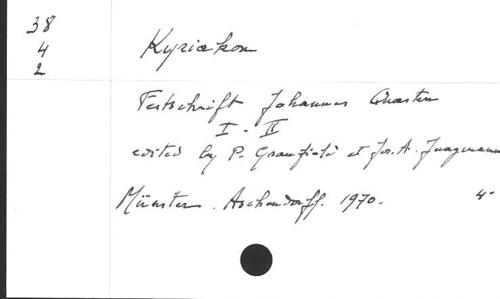 38
4
2
Kyriakon
Festschrift Johannes Quasten
I - II
edited by P. Granfield et Jos. A. Jungmann
Münster. Aschendorff. 1970. 4°